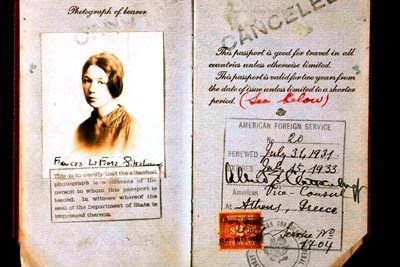 Photograph of bearer
This is to certify that the attached
photograph is a likeness of the
person to whom this passport is
issued. In witness whereof the
seal of the Department of State is
impressed thereon.
CANCELED
This passport is good for travel in all
countries unless otherwise limited.
This passport is valid for two years from
the date of issue unless limited to a shorter
period. (See below)
AMERICAN FOREIGN SERVICE
No. 20
RENEWED July 31, 1931
July 25, 1933
American Vice-Consul
At Athens, Greece
Service No
1704